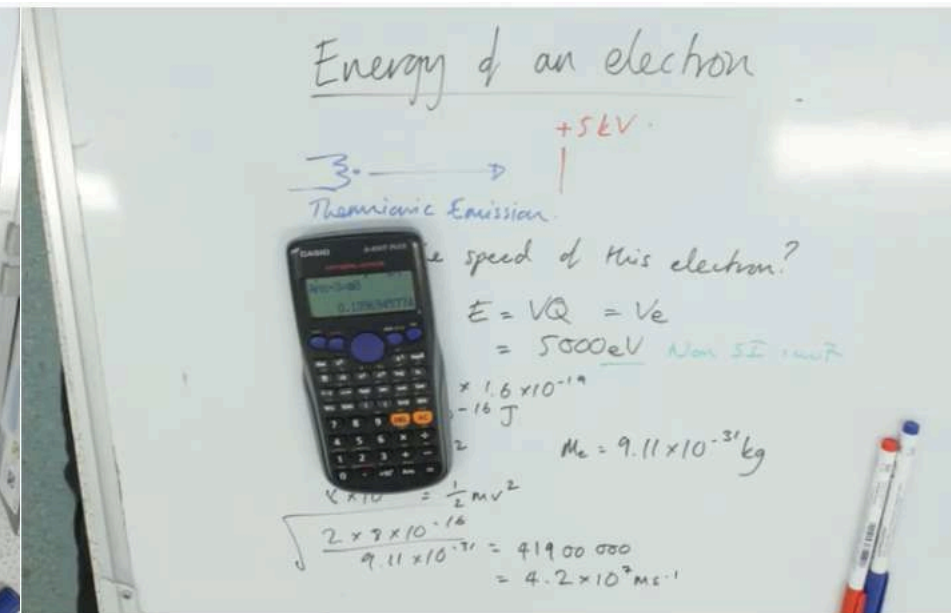 Energy of an electron
+5kV.
Thermionic Emission.
speed of this electron?
E = VQ = Ve
= 5000eV Non SI unit
× 1.6 × 10⁻¹⁹
⁻¹⁶ J
2
Me = 9.11 × 10⁻³¹ kg
= ½ mv²
√ 2 × 8 × 10⁻¹⁶ / 9.11 × 10⁻³¹ = 41900 000
= 4.2 × 10⁷ ms⁻¹
CASIO